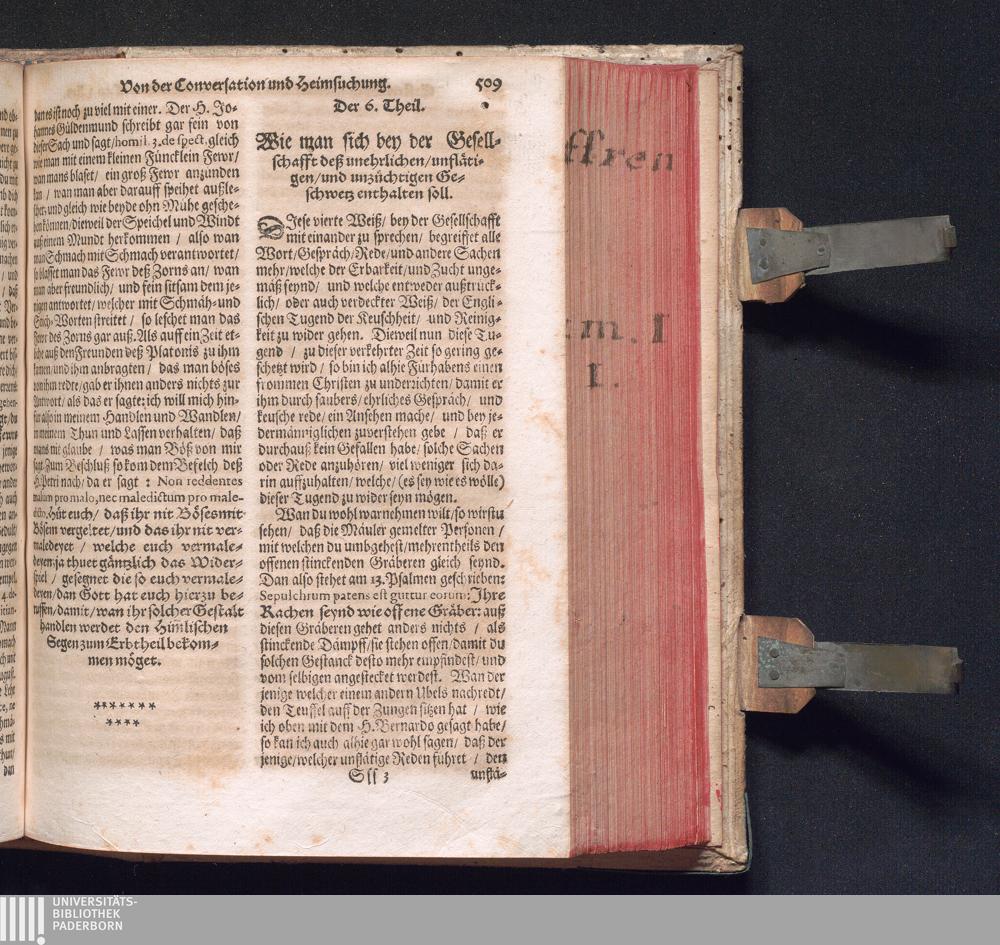 Von der Conversation und Heimsuchung. 509
dan es ist noch zu viel mit einer. Der H. Jo-
hannes Güldenmund schreibt gar fein von
dieser Sach und sagt/homil. 3. de spect. gleich
wie man mit einem kleinen Füncklein Fewr/
wan mans blaset/ ein groß Fewr anzunden
kan / wan man aber darauff speihet außle-
schet: und gleich wie beyde ohn Mühe gesche-
hen können/dieweil der Speichel und Windt
auß einem Mundt herkommen / also wan
man Schmach mit Schmach verantwortet/
so blasset man das Fewr deß Zorns an/ wan
man aber freundlich/ und fein sitsam dem je-
nigen antwortet/welcher mit Schmäh- und
Stich-Worten streitet / so leschet man das
Fewr des Zorns gar auß. Als auff ein Zeit et-
liche auß den Freunden deß Platonis zu ihm
kamen/und ihm anbragten / das man böses
von ihm redte/gab er ihnen anders nichts zur
Antwort/ als das er sagte: ich will mich hin-
für also in meinem Handlen und Wandlen/
in meinem Thun und Lassen verhalten/ daß
mans nit glaube / was man Böß von mir
sagt. Zum Beschluß so kom dem Befelch deß
H. Petri nach/ da er sagt : Non reddentes
malum pro malo, nec maledictum pro male-
dicto. Hüt euch/ daß ihr nit Böses mit
Bösem vergeltet/und das ihr nit ver-
maledeyet / welche euch vermale-
deyen: ja thuet gäntzlich das Wider-
spiel / gesegnet die so euch vermale-
deyen/ dan Gott hat euch hierzu be-
ruffen/damit/wan ihr solcher Gestalt
handlen werdet den Himlischen
Segen zum Erbtheil bekom-
men möget.
*******
****
Der 6. Theil.
Wie man sich bey der Gesell-
schafft deß unehrlichen/unfläti-
gen/und unzüchtigen Ge-
schwetz enthalten soll.
DJese vierte Weiß/ bey der Gesellschafft
mit einander zu sprechen/ begreiffet alle
Wort/Gespräch/Rede/und andere Sachen
mehr/welche der Erbarkeit/und Zucht unge-
mäß seynd/ und welche entweder außtrück-
lich/ oder auch verdeckter Weiß/ der Engli-
schen Tugend der Keuschheit/ und Reinig-
keit zu wider gehen. Dieweil nun diese Tu-
gend / zu dieser verkehrter Zeit so gering ge-
schetzt wird / so bin ich alhie Fürhabens einen
frommen Christen zu underrichten/damit er
ihm durch saubers/ehrliches Gespräch/ und
keusche rede/ein Ansehen mache/ und bey je-
dermänniglichen zuverstehen gebe / daß er
durchauß kein Gefallen habe/ solche Sachen
oder Rede anzuhören/ viel weniger sich da-
rin auffzuhalten/welche/(es sey wie es wölle)
dieser Tugend zu wider seyn mögen.
Wan du wohl warnehmen wilt/so wirstu
sehen/ daß die Mäuler gemelter Personen /
mit welchen du umbgehest/mehrentheils den
offenen stinckenden Gräberen gleich seynd.
Dan also stehet am 13. Psalmen geschrieben:
Sepulchrum patens est guttur eorum: Ihre
Rachen seynd wie offene Gräber: auß
diesen Gräberen gehet anders nichts / als
stinckende Dämpff/sie stehen offen/damit du
solchen Gestanck desto mehr empfindest/und
vom selbigen angestecket werdest. Wan der
jenige welcher einem andern Ubels nachredt/
den Teuffel auff der Zungen sitzen hat / wie
ich oben mit dem H. Bernardo gesagt habe/
so kan ich auch alhie gar wohl sagen/ daß der
jenige/welcher unflätige Reden führet / den
Sss 3 unflä-
ffren
m. I
I.
UNIVERSITÄTS-
BIBLIOTHEK
PADERBORN